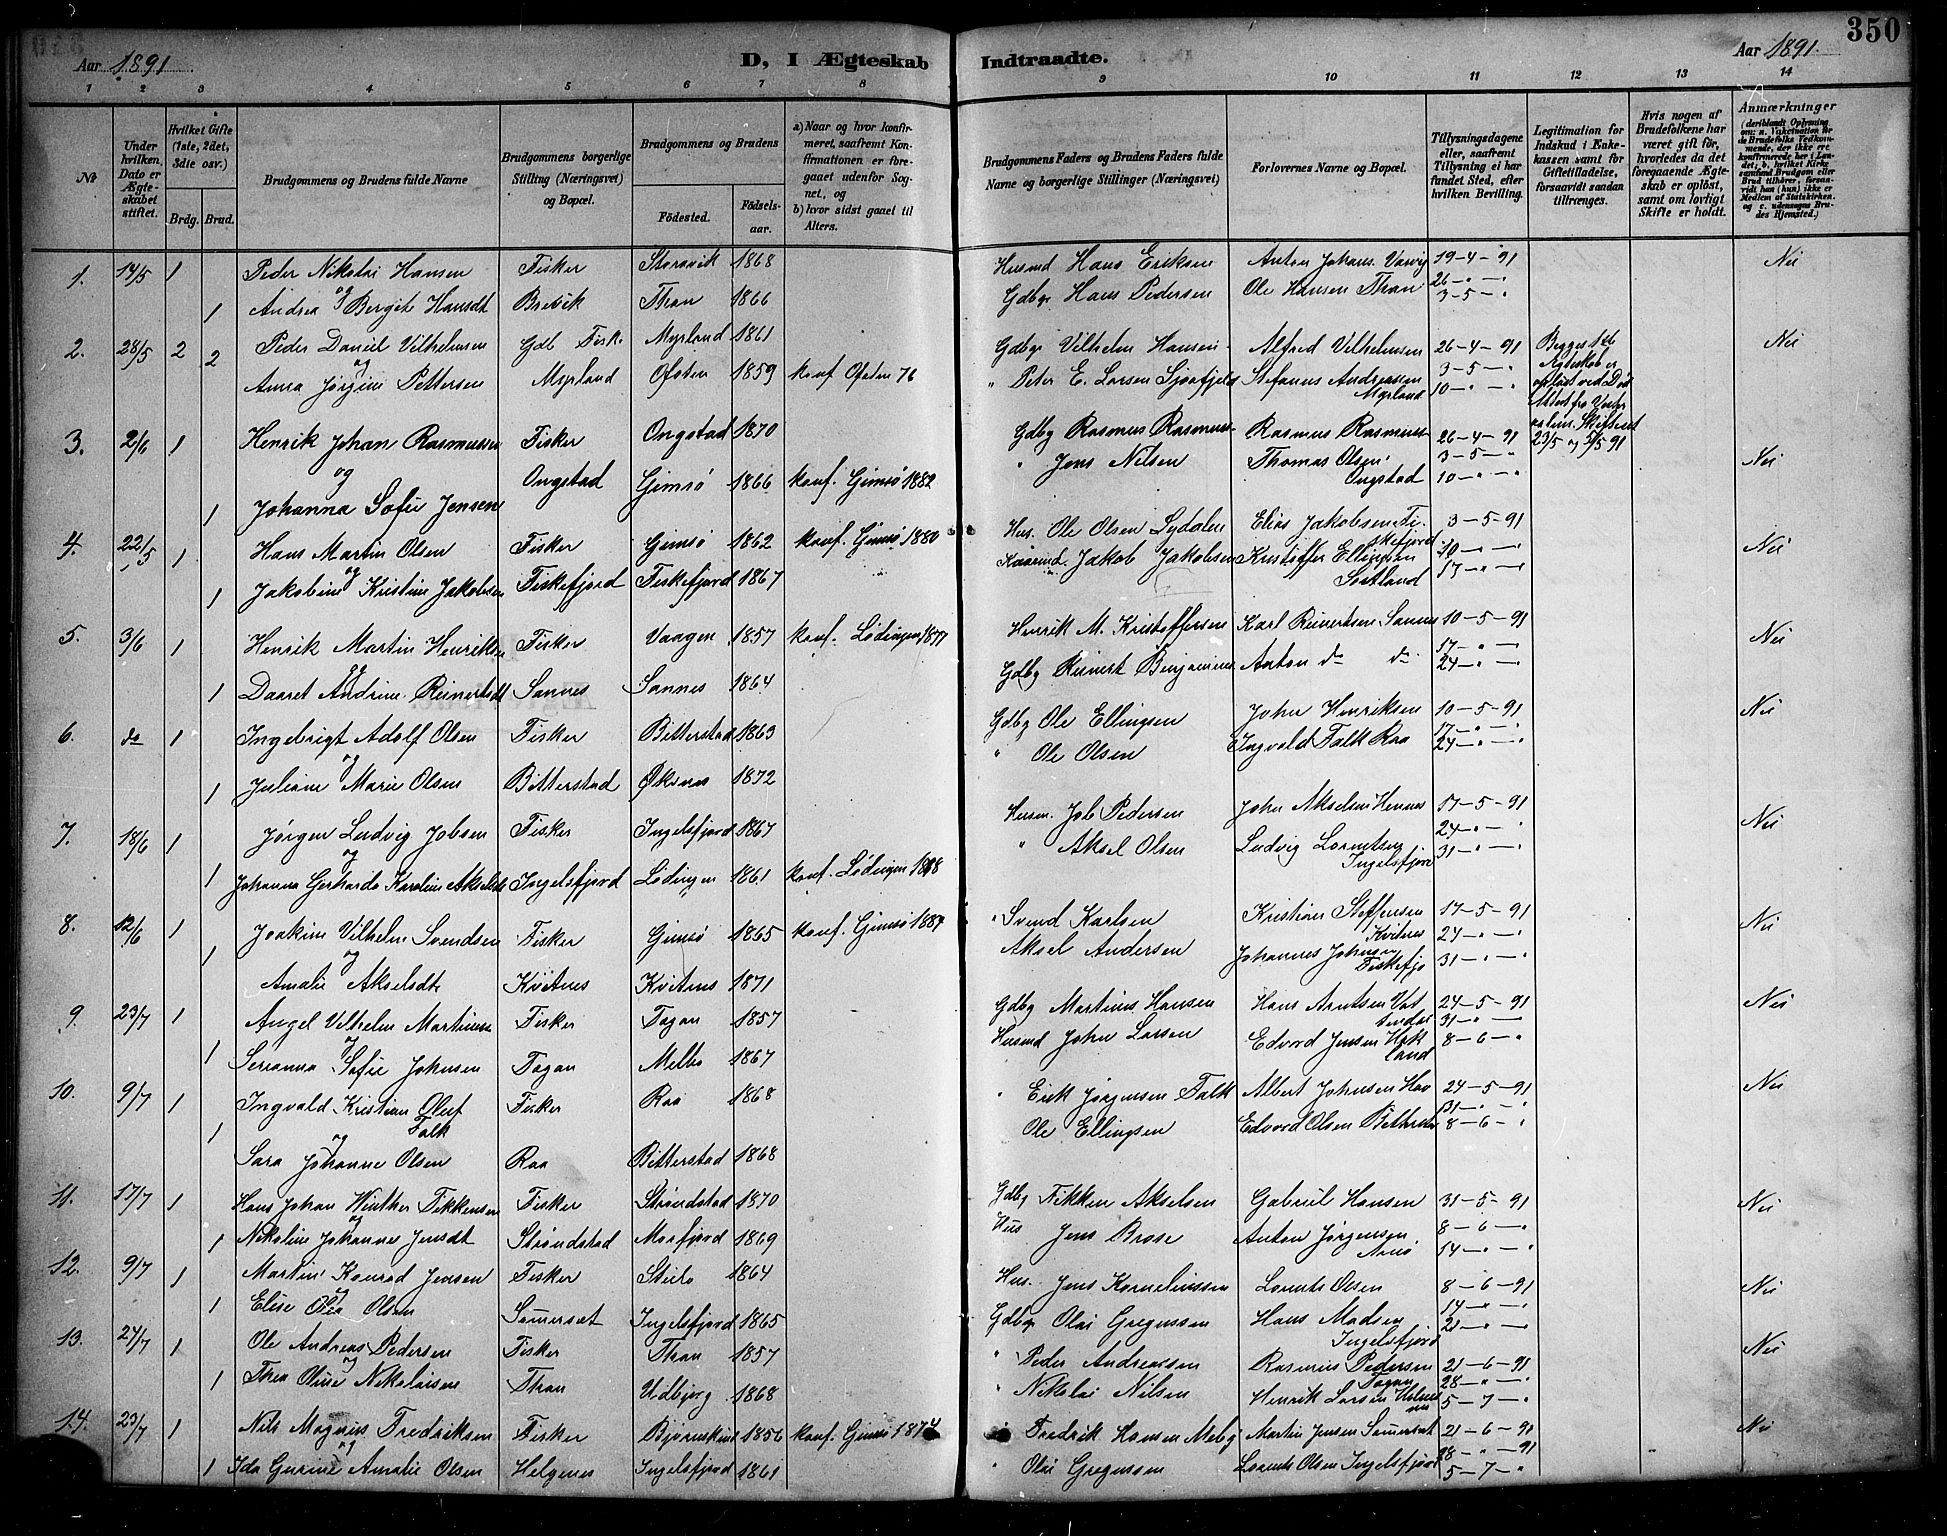 350
Aar 1891. D, I Ægteskab Indtraadte. Aar 1891.
1 2 3 4 5 6 7 8 9 10 11 12 13 14
No
Under hvilken Dato er Ægteskabet stiftet.
Hvilket Gifte (1ste, 2det, 3die osv.)
Brdg. Brud.
Brudgommens og Brudens fulde Navne
Brudgommens borgerlige Stilling (Næringsvei) og Bopæl.
Brudgommens og Brudens
Fødested. Fødselsaar.
a) Naar og hvor konfirmeret, saafremt Konfirmationen er foregaaet udenfor Sognet, og
b) hvor sidst gaaet til Alters.
Brudgommens Faders og Brudens Faders fulde Navne og borgerlige Stillinger (Næringsvei)
Forlovernes Navne og Bopæl.
Tillysningsdagene eller, saafremt Tillysning ei har fundet Sted, efter hvilken Bevilling.
Legitimation for Indskud i Enkekassen samt for Giftetilladelse, forsaavidt saadan tiltrænges.
Hvis nogen af Brudefolkene har været gift før, hvorledes da det foregaaende Ægteskab er opløst, samt om lovligt Skifte er holdt.
Anmærkninger
(deriblandt Oplysning om: a. Vakcination for de Brudefolks Vedkommende, der ikke ere konfirmerede her i Landet; b. hvilket Kirkesamfund Brudgom eller Brud tilhører, forsaavidt han (hun) ikke er Medlem af Statskirken, og c. udensogns Brudes Hjemsted.)
1. 14/5 1 Peder Nikolai Hansen Fisker Storevik 1868 Husmd Hans Eriksen Anton Johans. Varvig 19-4-91 Nei
og 26-"-"
1 Andrea Bergit Hansdt Brevik Thran 1866 Gdbgr Hans Pedersen Ole Hansen Thran 3-5-"
2. 28/5 2 Peder Daniel Vilhelmsen Gdb Fisk. Myrland 1861 Gdbgr Vilhelm Hansen Alfred Vilhelmsen 26-4-91 Begges 1ste Nei
2 og 3-5-" Ægteskab er
Anna Jørgine Pettersen Myrland Ofoten 1859 konf Ofoten 76 " Peter E. Larsen Sjaafjeld Stefanus Andreassen Myrland 10-"-" opløst ved Død
Attest fra Vester
aalen. Skifteret
23/5 og 5/5 91
3. 2/6 1 Henrik Johan Rasmussen Fisker Ongstad 1870 Gdbg Rasmus Rasmus- Rasmus Rasmus- 26-4-91 Nei
og " Jens Nilsen Thomas Olsen 3-5-"
1 Johanna Sofie Jensen Ongstad Gimsø 1866 konf. Gimsø 1882 Ongstad 10-"-"
4. 22/5 1 Hans Martin Olsen Fisker Gimsø 1862 konf. Gimsø 1880 Hus. Ole Olsen Lydalen Elias Jakobsen Fiskefjord 3-5-91 Nei
og 10-"-"
1 Jakobine Kristine Jakobsen Fiskefjord Fiskefjord 1867 Jakob Jakobsen Kristoffer Ellingsen Sortland 17-"-"
5. 3/6 1 Henrik Martin Henriksen Fisker Vaagen 1857 konf. Lødingen 1877 Henrik M. Kristoffersen Karl Reinertsen Sannes 10-5-91 Nei
og 17-"-"
1 Daaret Andrine Reinertsdt Sannes Sannes 1864 Gdbg Reinert Benjaminsen Anton do do 24-"-"
6. do 1 Ingebrigt Adolf Olsen Fisker Bitterstad 1863 Gdbg Ole Ellingsen John Henriksen 10-5-91 Nei
og 17-"-"
1 Juliane Marie Olsen Bitterstad Øksnes 1872 " Ole Olsen Ingvald Falk Raa 24-"-"
7. 18/6 1 Jørgen Ludvig Jobsen Fisker Ingelsfjord 1867 Husm. Job Pedersen John Akselsen Hennes 17-5-91 Nei
og 24-"-"
1 Johanna Gerharda Karoline Akselsdt Ingelsfjord Lødingen 1861 konf. Lødingen " Aksel Olsen Ludvig Lorentsen Ingelsfjord 31-"-"
8. 12/6 1 Joakim Vilhelm Svendsen Fisker Gimsø 1865 konf. Gimsø " Svend Karlsen Kristian Steffensen Kvitnes 17-5-91 Nei
1 og 24-"-"
Amalie Akselsdt Kvitnes Kvitnes 1871 Aksel Andersen Johannes Johnsen Fiskefjo 31-"-"
9. 23/7 1 Angel Vilhelm Martinus Fisker Fagan 1857 Gdbg Martinus Hansen Hans Arntsen 24-5-91 Nei
og 31-"-"
1 Serianna Sofie Johnsen Fagan Melbo 1867 Husmd John Larsen Edvard Jensen Hokland 8-6-"
10. 9/7 1 Ingvald Kristian Oluf Falk Fisker Raa 1868 " Erik Jørgensen Falk Albert Johnsen Hav 24-5-91 Nei
1 og 31-"-"
Sara Johanne Olsen Raa Bitterstad 1868 Ole Ellingsen Edvard Olsen Bitterstad 8-6-"
11. 17/7 1 Hans Johan Winther Fikkensen Fisker Strøndstad 1870 Gdbg Fikken Akselsen Gabriel Hansen 31-5-91 Nei
og 8-6-"
1 Nikoline Johanne Jensdt Strøndstad Morfjord 1869 Hus Jens Brose Anton Jørgensen Arnø 14-"-"
12. 9/7 1 Martin Konrad Jensen Fisker Steilo 1864 Hus. Jens Korneliussen Lorents Olsen 8-6-91 Nei
og 14-"-"
1 Elise Olea Olsen Sømersæt Ingelsfjord 1865 Gdbgr Olai Gregussen Hans Madsen Ingelsfjord 21-"-"
13. 24/7 1 Ole Andreas Pedersen Fisker Thran 1857 " Peder Andreassen Rasmus Pedersen Fagan 21-6-91 Nei
og 28-"-"
1 Thea Oline Nikolaisen Thran Udbjørg 1868 " Nikolai Nilsen Henrik Larsen 5-7-"
14. 23/7 1 Nils Magnus Fredriksen Fisker 1856 konf. Gimsø 1874 Fredrik Hansen Melby Martin Jensen Sømersæt 21-6-91 Nei
og 28-"-91
1 Ida Gurine Amalie Olsen Helgenes Ingelsfjord 1861 " Olai Gregussen Lorents Olsen Ingelsfjord 5-7-"